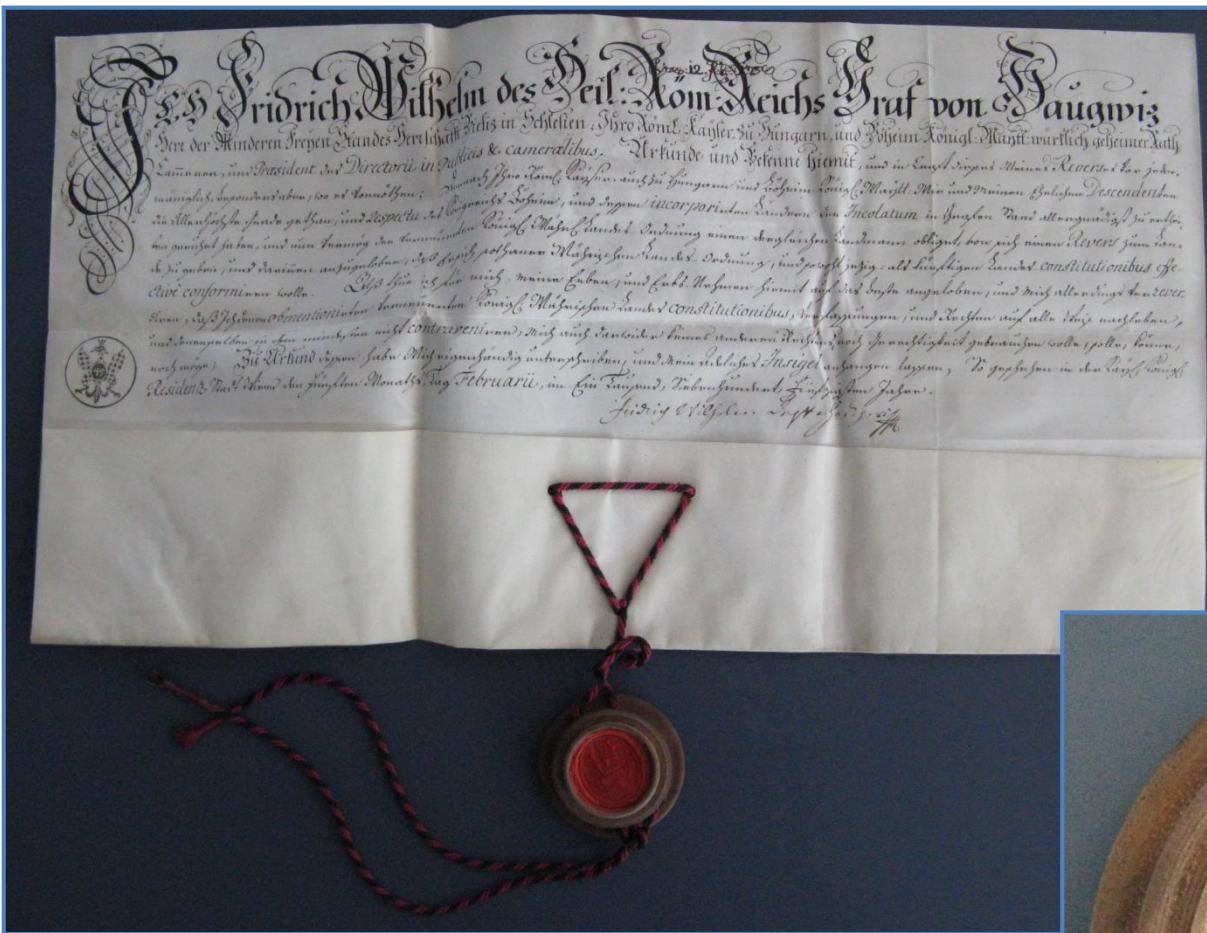 Ich Fridrich Wilhelm des Heil: Röm: Reichs Graf von Haugwiz
Herr der Minderen Freyen Standes Herrschafft Bieliz in Schlesien, Ihro Röm: Kayser: zu Hungarn, und Böheim Königl: Maytt: würklich geheimer Rath,
Cammerer, und Præsident des Directorii in Publicis & cameralibus. Urkunde und Bekenne hiemit, und in Krafft dieses Meines Reverses vor jeder-
männiglich, besonders aber, wo es vonnöthen: Demnach Ihro Röml: Kayser: auch zu Hungarn und Böheim Königl: Maytt: Mir und Meinen Ehelichen Descendenten
die Allerhöchste Gnade gethan, und Respectu des Königreichs Böheim, und dessen incorporirten Landern den Incolatum in Grafen Stand allergnädigst zu erthei-
len geruhet haben, und nun vermög der Königl: Mähr: Landes Ordnung einen dergleichen Landmann obliget, von sich einen Revers zum Lan-
de zu geben, und darinnen anzugeloben, daß Er sich sothaner Mährischen Landes Ordnung, und sowohl jezig- als künftigen Landes constitutionibus effe-
ctivè conformiren wolle. Als thue ich für mich, meine Erben, und Erbs Nehmen hiemit auf das beste angeloben, und mich allerdings rever-
siren, daß Ich denen Königl: Mährischen Landes constitutionibus, Verfassungen, und Rechten auf alle Weise nachleben,
und denenselben in dem mindesten nicht contraveniren, mich auch darwider keines anderen Rechtens noch Gerechtigkeit gebrauchen wolle, solle, könne,
noch möge; Zu Urkund dessen habe Mich eigenhändig unterschrieben, und Mein Adeliches Insigel anhangen lassen, So geschehen in der Kayl: Königl:
Residenz-Stadt Wienn den Fünfften Monaths Tag Februarii, in Ein Tausend, Siebenhundert, Jahre.
Fridrich Wilhelm Haugwiz